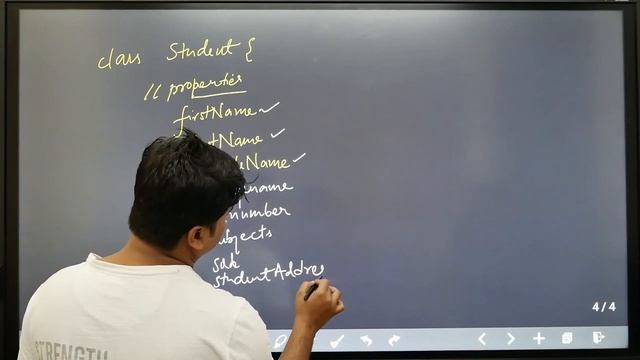 class Student {
// properties
firstName ✓
Name ✓
Name ✓
name
number
subjects
studentAddres
4/4
STRENGTH